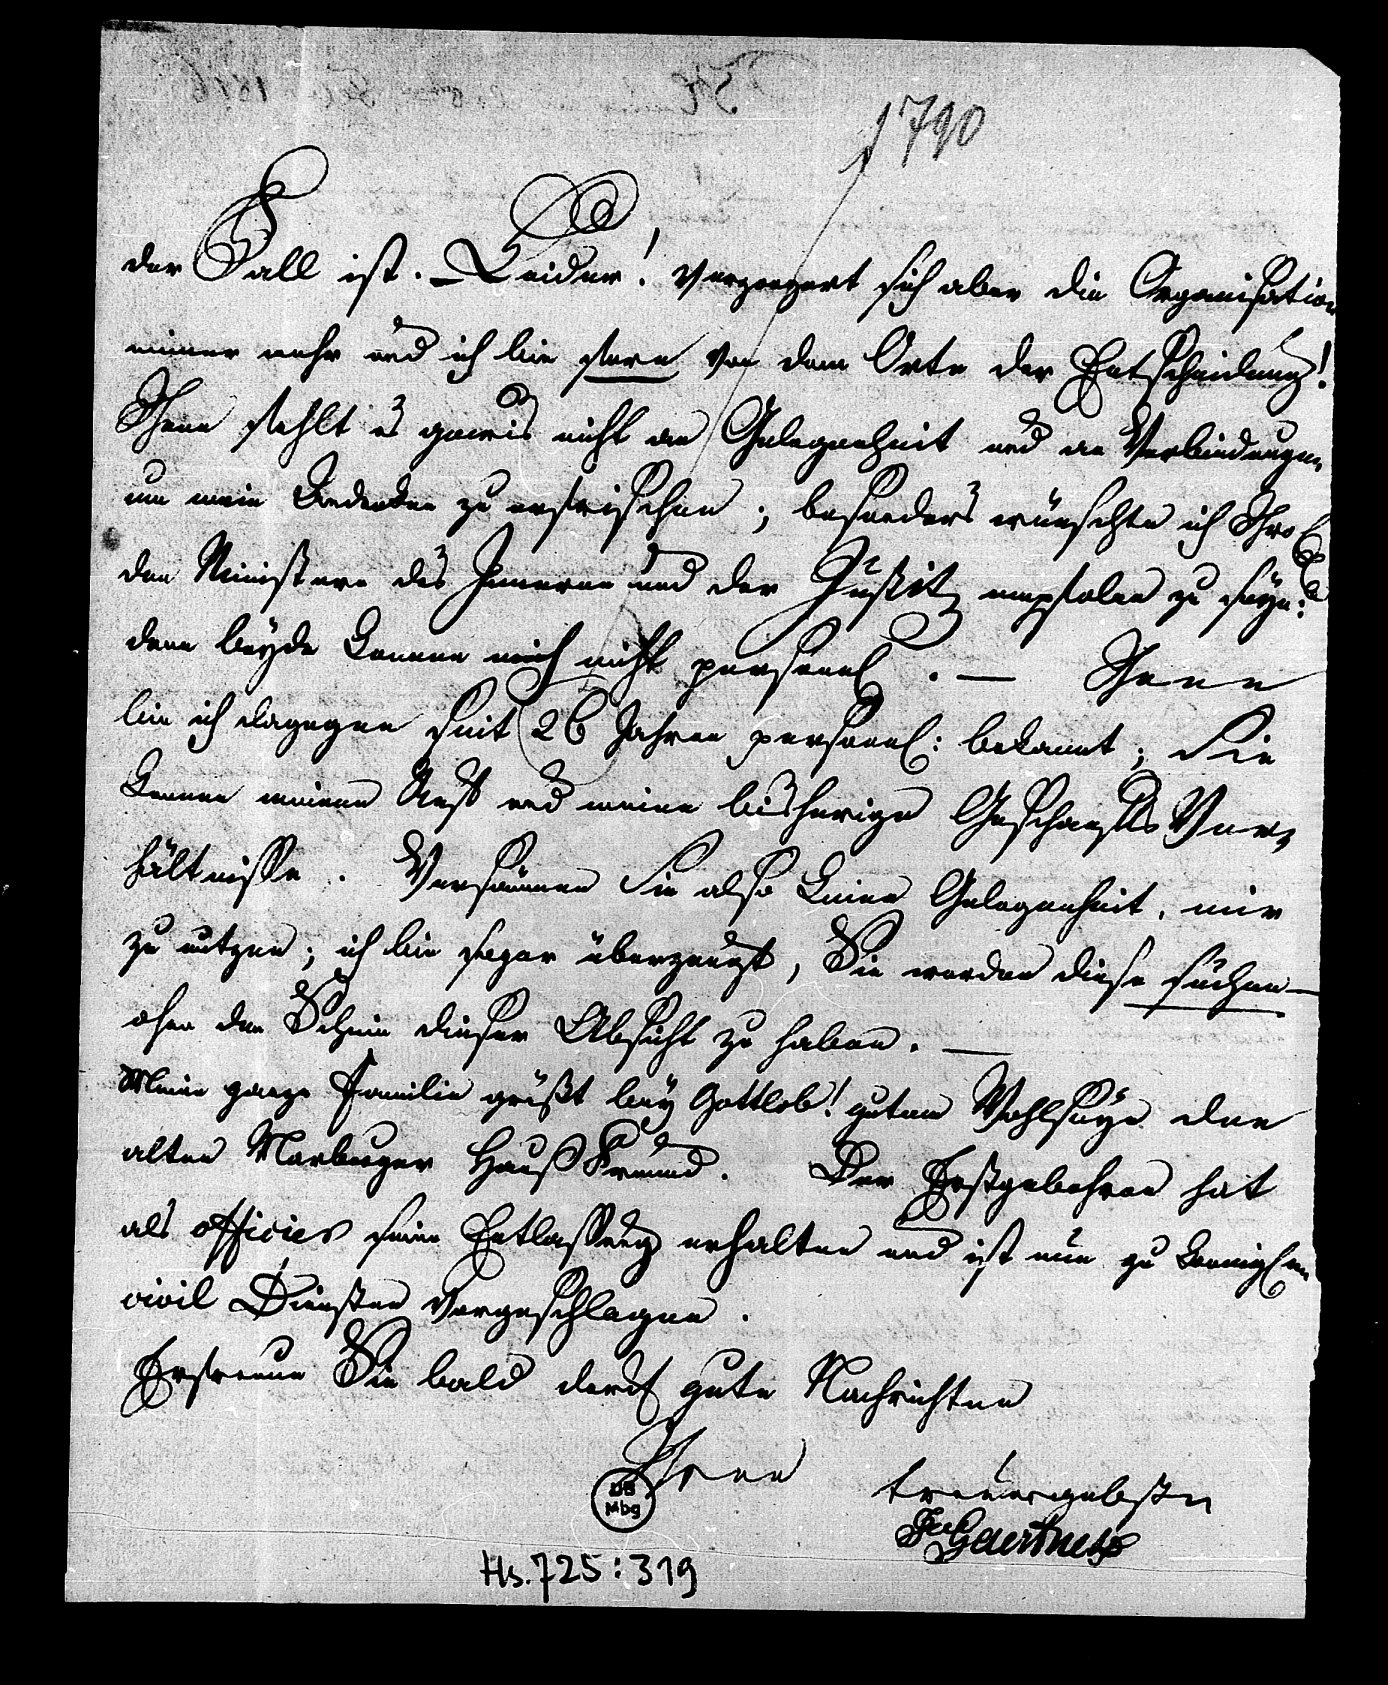 1790
der Fall ist. – Leider! verzoegert sich aber die Organisation
immer mehr und ich bin ferne von dem Orte der Entscheidung!
Ihnen fehlt es gewis nicht an Gelegenheit und an Verbindungen
um mein Andenken zu erfrischen; besonders wünschte ich Ihro
den Ministern des Inneren und der Justitz empfolen zu seyn:
denn beyde kennen mich nicht persoenl. — Ihnen
bin ich dagegen seit 26 Jahren persoenl: bekannt; Sie
kennen meinen und meine bisherige Geschaefts Ver-
hältnisse. Versäumen Sie also keine Gelegenheit, mir
zu nutzen; ich bin sogar überzeugt, Sie werden diese suchen –
ohne den Schein dieser Absicht zu haben. —
Meine ganze Familie grüßt bey Gottlob! gutem Wohlseyn den
alten Marburger Hauß Freund. Der Erstgebohrne hat
als officier seine Entlassung erhalten und ist nun zu koenigl.
civil Diensten vorgeschlagen.
Erfreuen Sie bald durch gute Nachrichten
Ihren
treuergebsten
Gaertner
DS
Mbg
Hs. 725:319